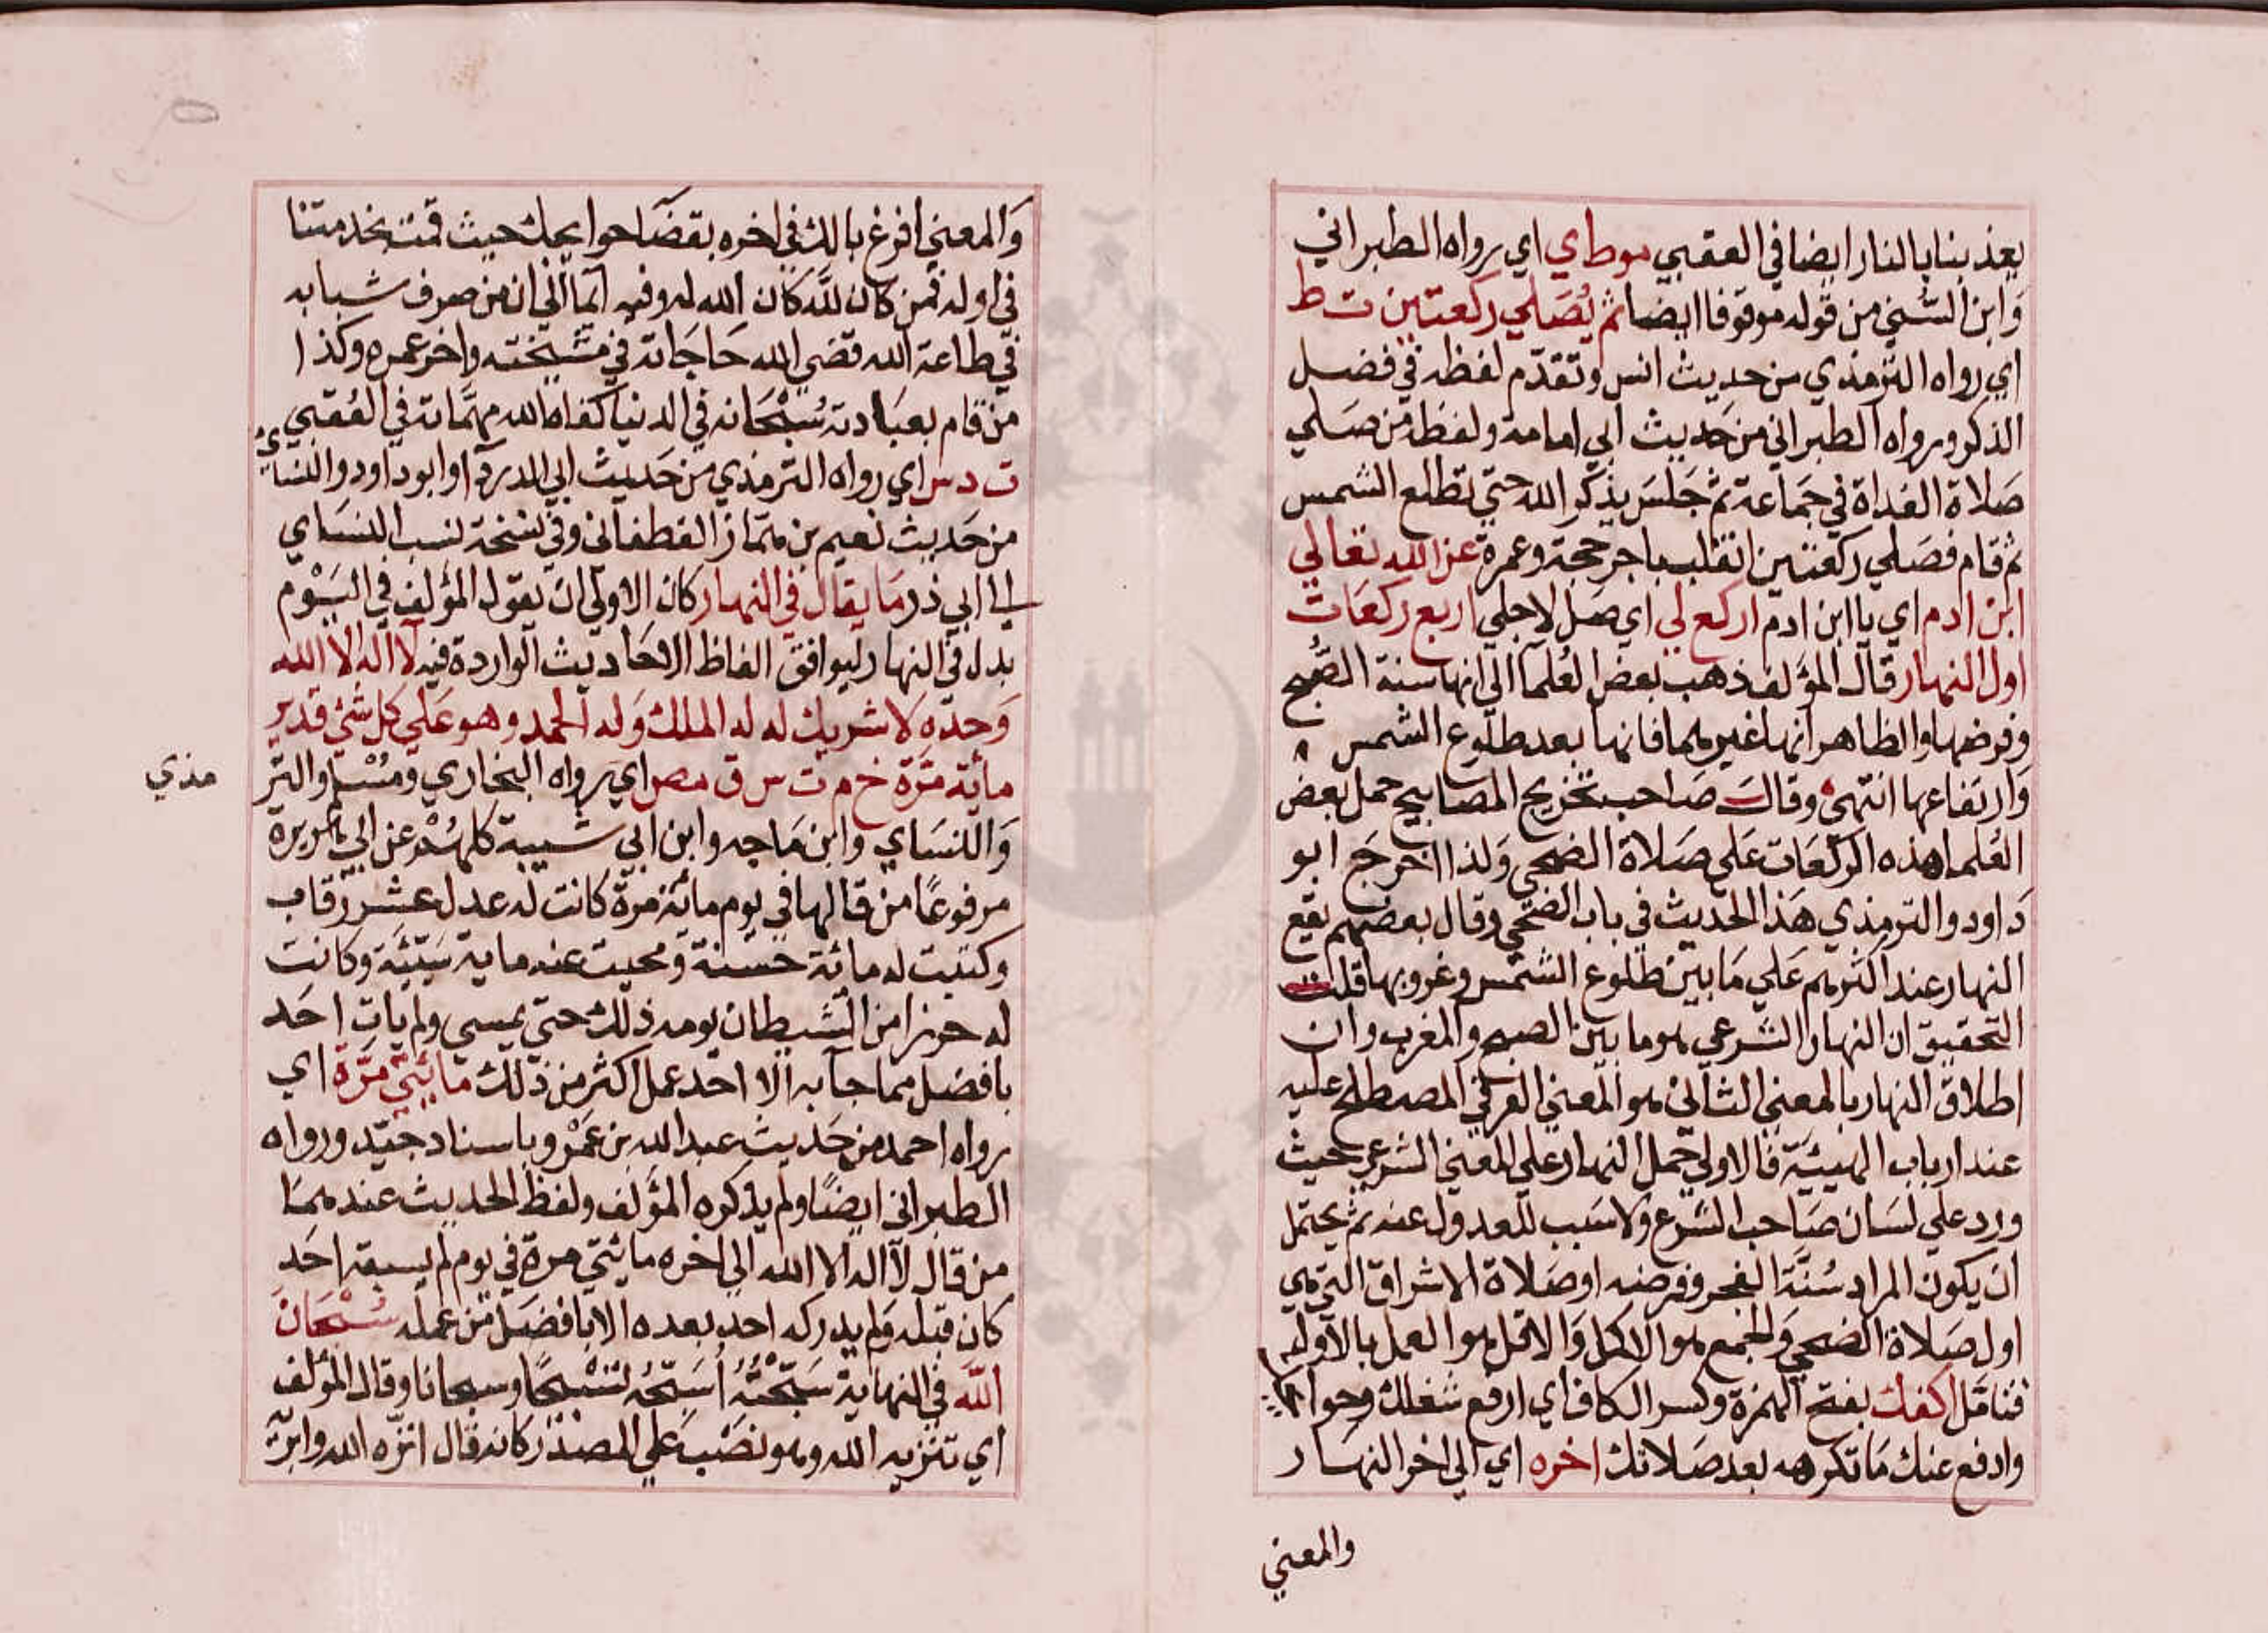 يعذبنا بالنار ايضا في العقبي موطاي اي رواه الطبراني
وابن السني من قوله موقوفا ايضا ثم يُصَلي ركعتين ت ط
اي رواه الترمذي من حديث انس وتقدّم لفظه في فضل
الذكر ورواه الطبراني من حديث ابي امامة ولفظه من صلي
صلاة الغداة في جماعة ثم جلس يذكر الله حتي تطلع الشمس
ثم قام فصلي ركعتين انقلب باجر حجة وعمرة عن الله تعالي
ابن ادم اي يا ابن ادم اركع لي اي صل لاجلي اربع ركعات
اول النهار قال المؤلف ذهب بعض العُلمآ الي انها سنة الصُّبح
وفرضها والظاهر انها غيرهما فانها بعد طلوع الشمس
وارتفاعها انتهي وقال صاحب تخريج المصابيح حمل بعض
العُلما هذه الركعات علي صلاة الضحي ولذا اخرج ابو
داود والترمذي هذا الحديث في باب الضحي وقال بعضهم يقع
النهار عند اكثرهم علي ما بين طلوع الشمس وغروبها قلت
التحقيق ان النهار الشرعي هو ما بين الصبح والمغرب وان
اطلاق النهار بالمعني الثاني هو المعني العرفي المصطلح عليه
عند ارباب الهيئية فالاولي حمل النهار علي المعني الشرعي حيث
ورد علي لسان صاحب الشرع ولا سبب للعدول عنه ثم يحتمل
ان يكون المراد سُنَّة الفجر وفرضه او صلاة الاشراق التي هي
اول صلاة الضحي والجمع هو الاكمل والاقل هو العمل بالاوله
فتامل اكفك بفتح الهمزة وكسر الكاف اي ارفع شغلك وحوا
وادفع عنك ما تكرهه بعد صلاتك اخره اي الي اخر النهار
والمعني
والمعني افرغ بالك في اخره بقضآ حوايجك حيث قمت بخدمتنا
في اوله فمن كان لله كان الله له وفيه ايمآ الي ان من صرف شبابه
في طاعة الله قضي الله حاجاته في مشيخته واخر عمره وكذا
من قام بعبادته سُبْحانه في الدنيا كفاه الله مهمّاته في العُقبي
ت د س اي رواه الترمذي من حديث ابي الدردآ وابو داود والنساي
من حديث نعيم بن همّاز الغطفاني وفي نسخة نسب النسَاي
الي ابي ذر ما يقال في النهار كان الاولي ان يقول المؤلف في اليَوْم
بدل في النهار ليوافق الفاظ الاحاديث الواردة فيه لا اله الا الله
وحده لا شريك له له الملك وله الحمد وهو علي كل شئ قدير
مائة مرّة خ م ت س ق مص اي رواه البخاري ومسْلم والتر
مذي
والنساي وابن ماجه وابن ابي شيبة كلهم عن ابي هريرة
مرفوعًا من قالها في يوم مائة مرة كانت له عدل عشر رقاب
وكتبت له مائة حسنة ومحيت عنه ماية سيّئة وكانت
له حرزا من الشيطان يومه ذلك حتي يمسي ولم يات احد
بافضل مما جآ به الا احد عمل اكثر من ذلك مائتي مرّة اي
رواه احمد من حديث عبد الله بن عمْرو باسناد جيّد ورواه
الطبراني ايضًا ولم يذكره المؤلف ولفظ الحديث عندهما
من قال لا اله الا الله الي اخره مائتي مرة في يوم لم يسبقه احد
كان قبله ولم يدركه احد بعده الا بافضل من عمله سُبْحانَ
الله في النهاية سَبّحْتُهُ أسَبّحُهُ تسْبيحًا وسبحانا وقال المؤلف
اي تنزيه الله وهو نصب علي المصدر كانه قال انزّه الله وابرّئ